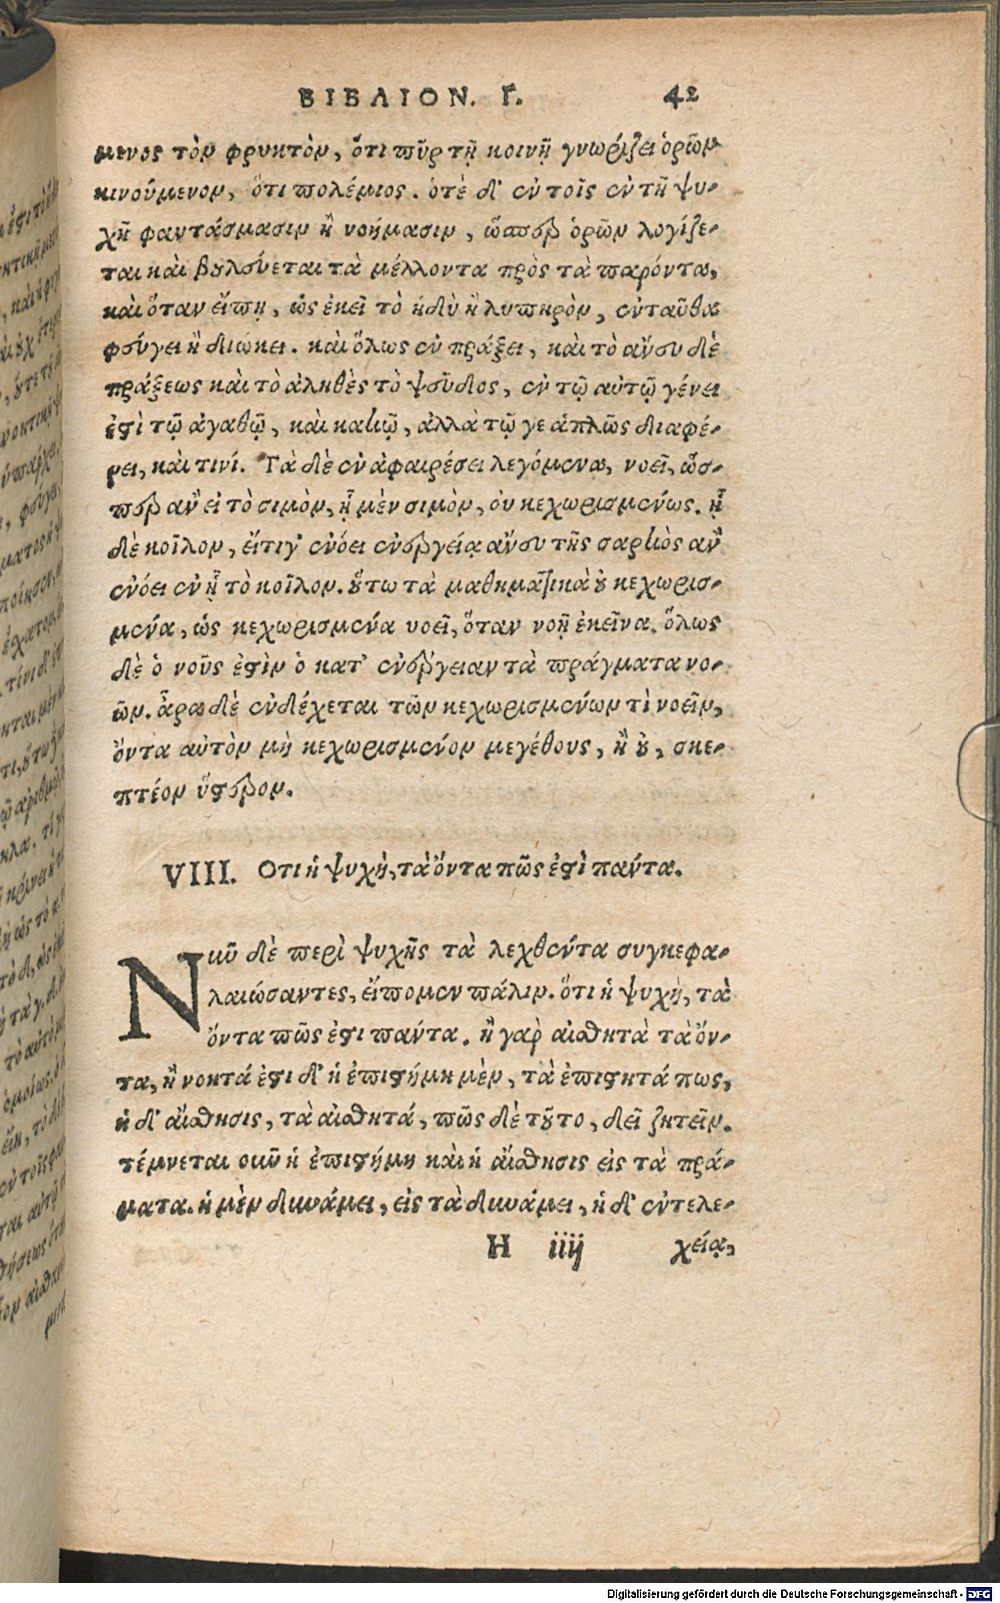 ΒΙΒΛΙΟΝ. Γ. 42
μενος τὸν φρυκτὸν, ὅτι πῦρ τῇ κοινῇ γνωρίζει ὁρῶν
κινούμενον, ὅτι πολέμιος. ὁτὲ δ' ἐν τοῖς ἐν τῇ ψυ-
χῇ φαντάσμασιν ἢ νοήμασιν, ὥσπερ ὁρῶν λογίζε-
ται καὶ βουλεύεται τὰ μέλλοντα πρὸς τὰ παρόντα,
καὶ ὅταν εἴπῃ, ὡς ἐκεῖ τὸ ἡδὺ ἢ λυπηρὸν, ἐνταῦθα
φεύγει ἢ διώκει. καὶ ὅλως ἐν πράξει, καὶ τὸ ἄνευ δὲ
πράξεως καὶ τὸ ἀληθὲς τὸ ψεῦδος, ἐν τῷ αὐτῷ γένει
ἐστὶ τῷ ἀγαθῷ, καὶ κακῷ, ἀλλὰ τῷ γε ἁπλῶς διαφέ-
ρει, καὶ τινί. Τὰ δὲ ἐν ἀφαιρέσει λεγόμενα, νοεῖ, ὥσ-
περ ἂν εἰ τὸ σιμὸν, ᾗ μὲν σιμὸν, οὐ κεχωρισμένως. ᾗ
δὲ κοῖλον, εἴ τις ἐνόει ἐνεργείᾳ ἄνευ τῆς σαρκὸς ἂν
ἐνόει ἐν ᾗ τὸ κοῖλον. οὕτω τὰ μαθηματικὰ οὐ κεχωρισ-
μένα, ὡς κεχωρισμένα νοεῖ, ὅταν νοῇ ἐκεῖνα. ὅλως
δὲ ὁ νοῦς ἐστὶν ὁ κατ' ἐνέργειαν τὰ πράγματα νο-
ῶν. ἆρα δὲ ἐνδέχεται τῶν κεχωρισμένων τὶ νοεῖν,
ὄντα αὐτὸν μὴ κεχωρισμένον μεγέθους, ἢ οὐ, σκε-
πτέον ὕστερον.
VIII. Οτι ἡ ψυχὴ, τὰ ὄντα πῶς ἐστὶ πάντα.
Νῦν δὲ περὶ ψυχῆς τὰ λεχθέντα συγκεφα-
λαιώσαντες, εἴπομεν πάλιν. ὅτι ἡ ψυχὴ, τὰ
ὄντα πῶς ἐστι πάντα. ἢ γὰρ αἰσθητὰ τὰ ὄν-
τα, ἢ νοητά ἐστι δ' ἡ ἐπιστήμη μὲν, τὰ ἐπιστητά πως,
ἡ δ' αἴσθησις, τὰ αἰσθητά, πῶς δὲ τοῦτο, δεῖ ζητεῖν.
τέμνεται οὖν ἡ ἐπιστήμη καὶ ἡ αἴσθησις εἰς τὰ πρά-
γματα. ἡ μὲν δυνάμει, εἰς τὰ δυνάμει, ἡ δ' ἐντελε-
H iiij χείᾳ,
Digitalisierung gefördert durch die Deutsche Forschungsgemeinschaft - DFG